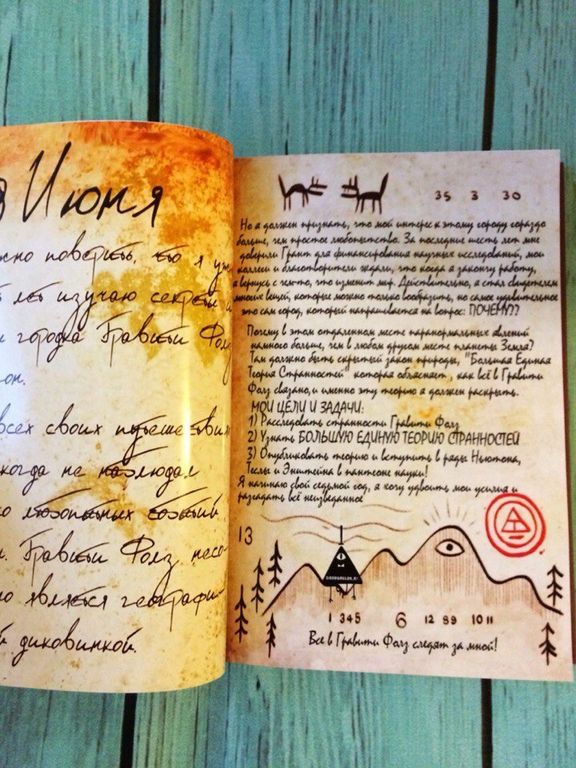 8 Июня
жно поверить, что я уж
лет изучаю секреты и
городка Гравити Фолз
он.
всех своих путешествия
когда не наблюдал
о любопытных событий
. Гравити Фолз несо-
о является географи-
й диковинкой.
35 3 30
Но я должен признать, что мой интерес к этому городу гораздо
больше, чем простое любопытство. За последние шесть лет мне
доверили Грант для финансирования научных исследований, мои
коллеги и благотворители ждали, что когда я закончу работу,
я вернусь с чем-то, что изменит мир. Действительно, я стал свидетелем
многих вещей, которые можно только вообразить, но самое удивительное
это сам город, который напрашивается на вопрос: ПОЧЕМУ??
Почему в этом отдаленном месте паранормальных явлений
намного больше, чем в любом другом месте планеты Земля?
Там должно быть скрытый закон природы, "Большая Единая
Теория Странностей" которая объясняет, как всё в Гравити
Фолз связано, и именно эту теорию я должен раскрыть.
МОИ ЦЕЛИ И ЗАДАЧИ:
1) Расследовать странности Гравити Фолз
2) Узнать БОЛЬШУЮ ЕДИНУЮ ТЕОРИЮ СТРАННОСТЕЙ
3) Опубликовать теорию и вступить в ряды Ньютона,
Теслы и Энштейна в пантеоне науки!
Я начинаю свой седьмой год, я хочу удвоить мои усилия и
разгадать всё неизведанное
13
1 345 6 12 89 10 11
Все в Гравити Фолз следят за мной!